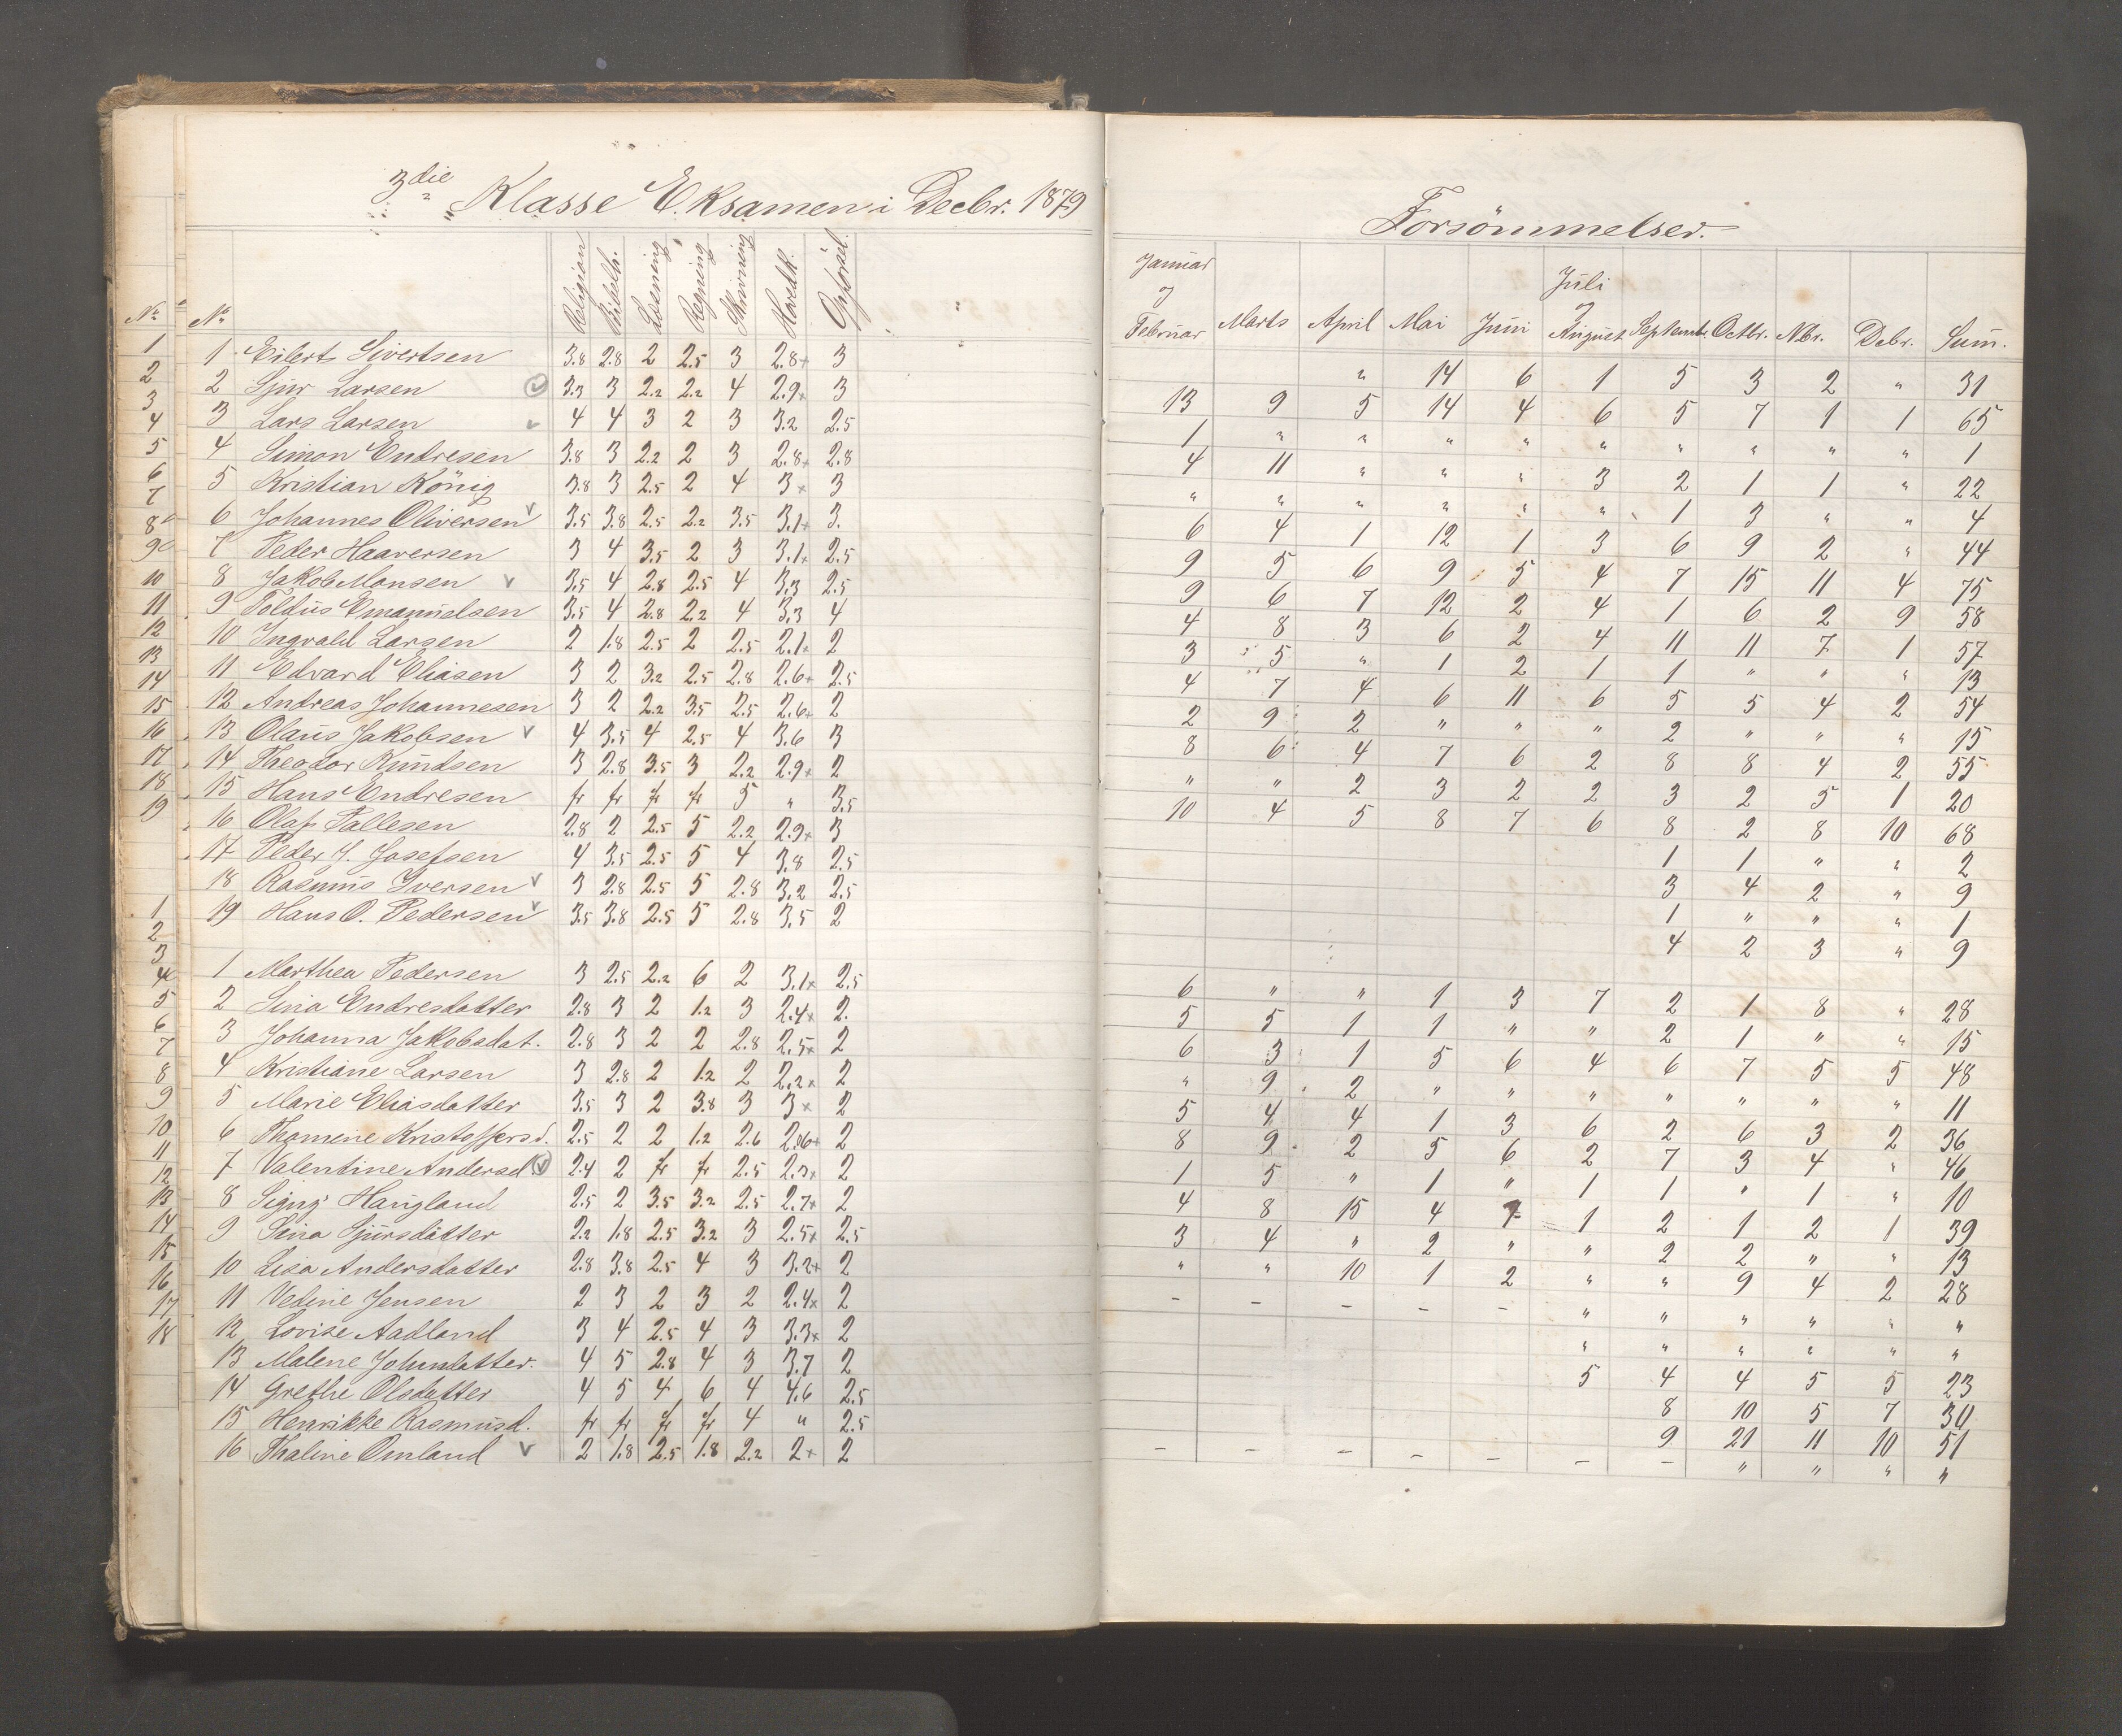 3die Klasse Eksamen i Decbr. 1879
No No Religion Bibelh. Læsning Regning Skrivning Hovedk. Opførsel.
1 Eilert Sivertsen 3.8 2.8 2 2.5 3 2.8+ 3
2 Sjur Larsen 3.3 3 2.2 2.2 4 2.9x 3
3 Lars Larsen 4 4 3 2 3 3.2 2.5
4 Simon Endresen 3.8 3 2.2 2 3 2.8+ 2.8
5 Kristian König 3.8 3 2.5 2 4 3x 3
6 Johannes Oliversen 3.5 3.8 2.5 2.2 3.5 3.1+ 3.
7 Peder Haaversen 3 4 3.5 2 3 3.1x 2.5
8 Jakob Monsen 3.5 4 2.8 2.5 4 3.3 2.5
9 Poldus Emanuelsen 3.5 4 2.8 2.2 4 3.3 4
10 Ingvald Larsen 2 1.8 2.5 2 2.5 2.1x 2
11 Edvard Eliasen 3 2 3.2 2.5 2.8 2.6+ 2.5
12 Andreas Johannesen 3 2 2.2 3.5 2.5 2.6+ 2
13 Olaus Jakobsen 4 3.5 4 2.5 4 3.6 3
14 Theodor Knudsen 3 2.8 3.5 3 2.2 2.9x 2
15 Hans Endresen fr fr fr fr 5 " 3.5
16 Olaf Tallesen 2.8 2 2.5 5 2.2 2.9x 3
17 Peder J. Josefsen 4 3.5 2.5 5 4 3.8 2.5
18 Rasmus Iversen 3 2.8 2.5 5 2.8 3.2 2.5
19 Hans O. Pedersen 3.5 3.8 2.5 5 2.8 3.5 2
1 Marthea Pedersen 3 2.5 2.2 6 2 3.1x 2.5
2 Sina Endresdatter 2.8 3 2 1.2 3 2.4x 2.
3 Johanna Jakobsdat. 2.8 3 2 2 2.8 2.5x 2
4 Kristiane Larsen 3 2.8 2 1.2 2 2.2x 2
5 Marie Eliasdatter 3.5 3 2 3.8 3 3x 2
6 Thomene Kristoffersd. 2.5 2 2 1.2 2.6 2.06+ 2
7 Valentine Andersd 2.4 2 fr fr 2.5 2.3x 2
8 Signy Haugland 2.5 2 3.5 3.2 2.5 2.7+ 2
9 Sina Sjursdatter 2.2 1.8 2.5 3.2 3 2.5x 2.5
10 Lisa Andersdatter 2.8 3.8 2.5 4 3 3.2+ 2
11 Vedine Jensen 2 3 2 3 2 2.4x 2
12 Lovise Aadland 3 4 2.5 4 3 3.3x 2
13 Malene Johnsdatter. 4 5 2.8 4 3 3.7 2
14 Grethe Olsdatter 4 5 4 6 4 4.6 2.5
15 Henrikke Rasmusd. fr fr fr fr 4 " 2.5
16 Thaline Omland 2 1.8 2.5 1.8 2.2 2x 2
1
2
3
4
5
6
7
8
9
10
11
12
13
14
15
16
17
18
19
1
2
3
4
5
6
7
8
9
10
11
12
13
14
15
16
17
18
Forsömmelser.
Januar og Februar Marts April Mai Juni Juli og August Septembr. Octbr. Nbr. Debr. Sum.
" 14 6 1 5 3 2 " 31
13 9 5 14 4 6 5 7 1 1 65
1 " " " " " " " " " 1
4 11 " " " 3 2 1 1 " 22
" " " " " " 1 3 " " 4
6 4 1 12 1 3 6 9 2 " 44
9 5 6 9 5 4 7 15 11 4 75
9 6 7 12 2 4 1 6 2 9 58
4 8 3 6 2 4 11 11 7 1 57
3 5 " 1 2 1 1 " " " 13
4 7 4 6 11 6 5 5 4 2 54
2 9 2 " " " 2 " " " 15
8 6 4 7 6 2 8 8 4 2 55
" " 2 3 2 2 3 2 5 1 20
10 4 5 8 7 6 8 2 8 10 68
1 1 " " 2
3 4 2 " 9
1 " " " 1
4 2 3 " 9
6 " " 1 3 7 2 1 8 " 28
5 5 1 1 " " 2 1 " " 15
6 3 1 5 6 4 6 7 5 5 48
" 9 2 " " " " " " " 11
5 4 4 1 3 6 2 6 3 2 36
8 9 2 5 6 2 7 3 4 " 46
1 5 " 1 " 1 1 " 1 " 10
4 8 15 4 7 1 2 1 2 1 39
3 4 " 2 " " 2 2 " " 13
" " 10 1 2 " " 9 4 2 28
- - - - - " " " " " "
" " " " " "
5 4 4 5 5 23
8 10 5 7 30
9 21 11 10 51
- - - - - - - " " " "